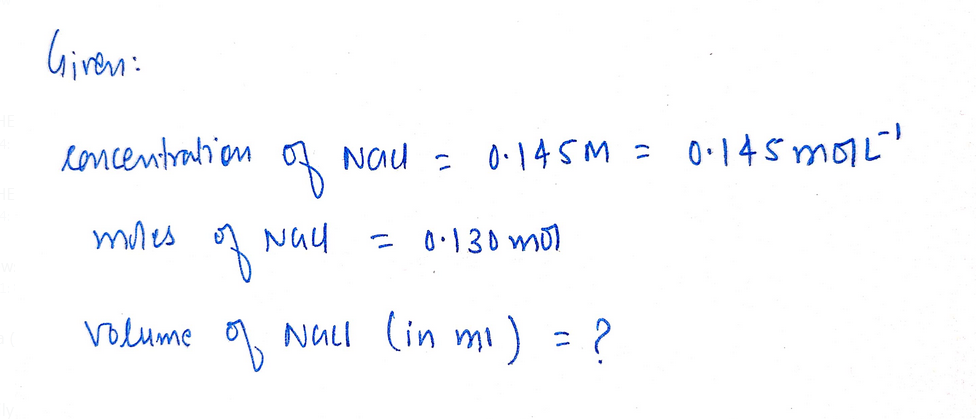 Given:
concentration of NaCl = 0.145M = 0.145 mol L⁻¹
moles of NaCl = 0.130 mol
Volume of NaCl (in ml) = ?